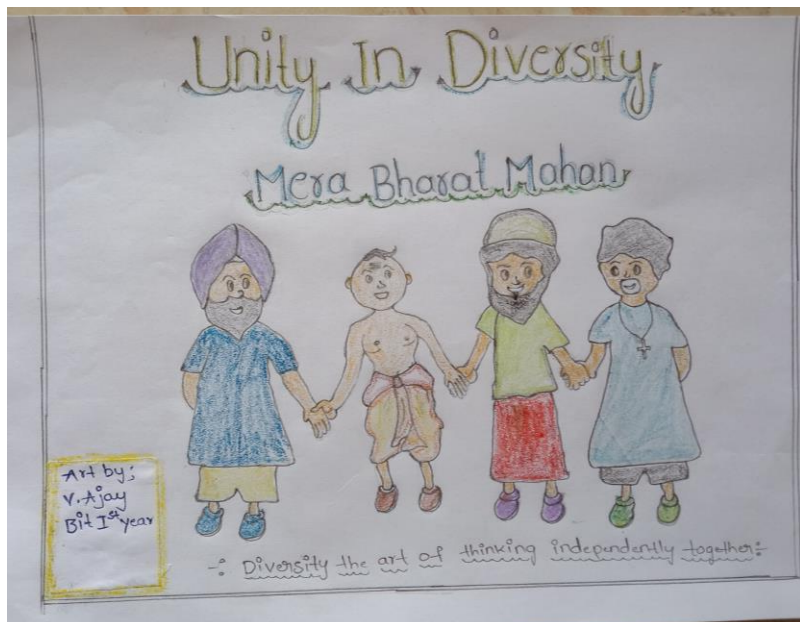 Unity In Diversity
Mera Bharat Mahan
Art by;
V. Ajay
Bit Ist year
-: Diversity the art of thinking independently together:-